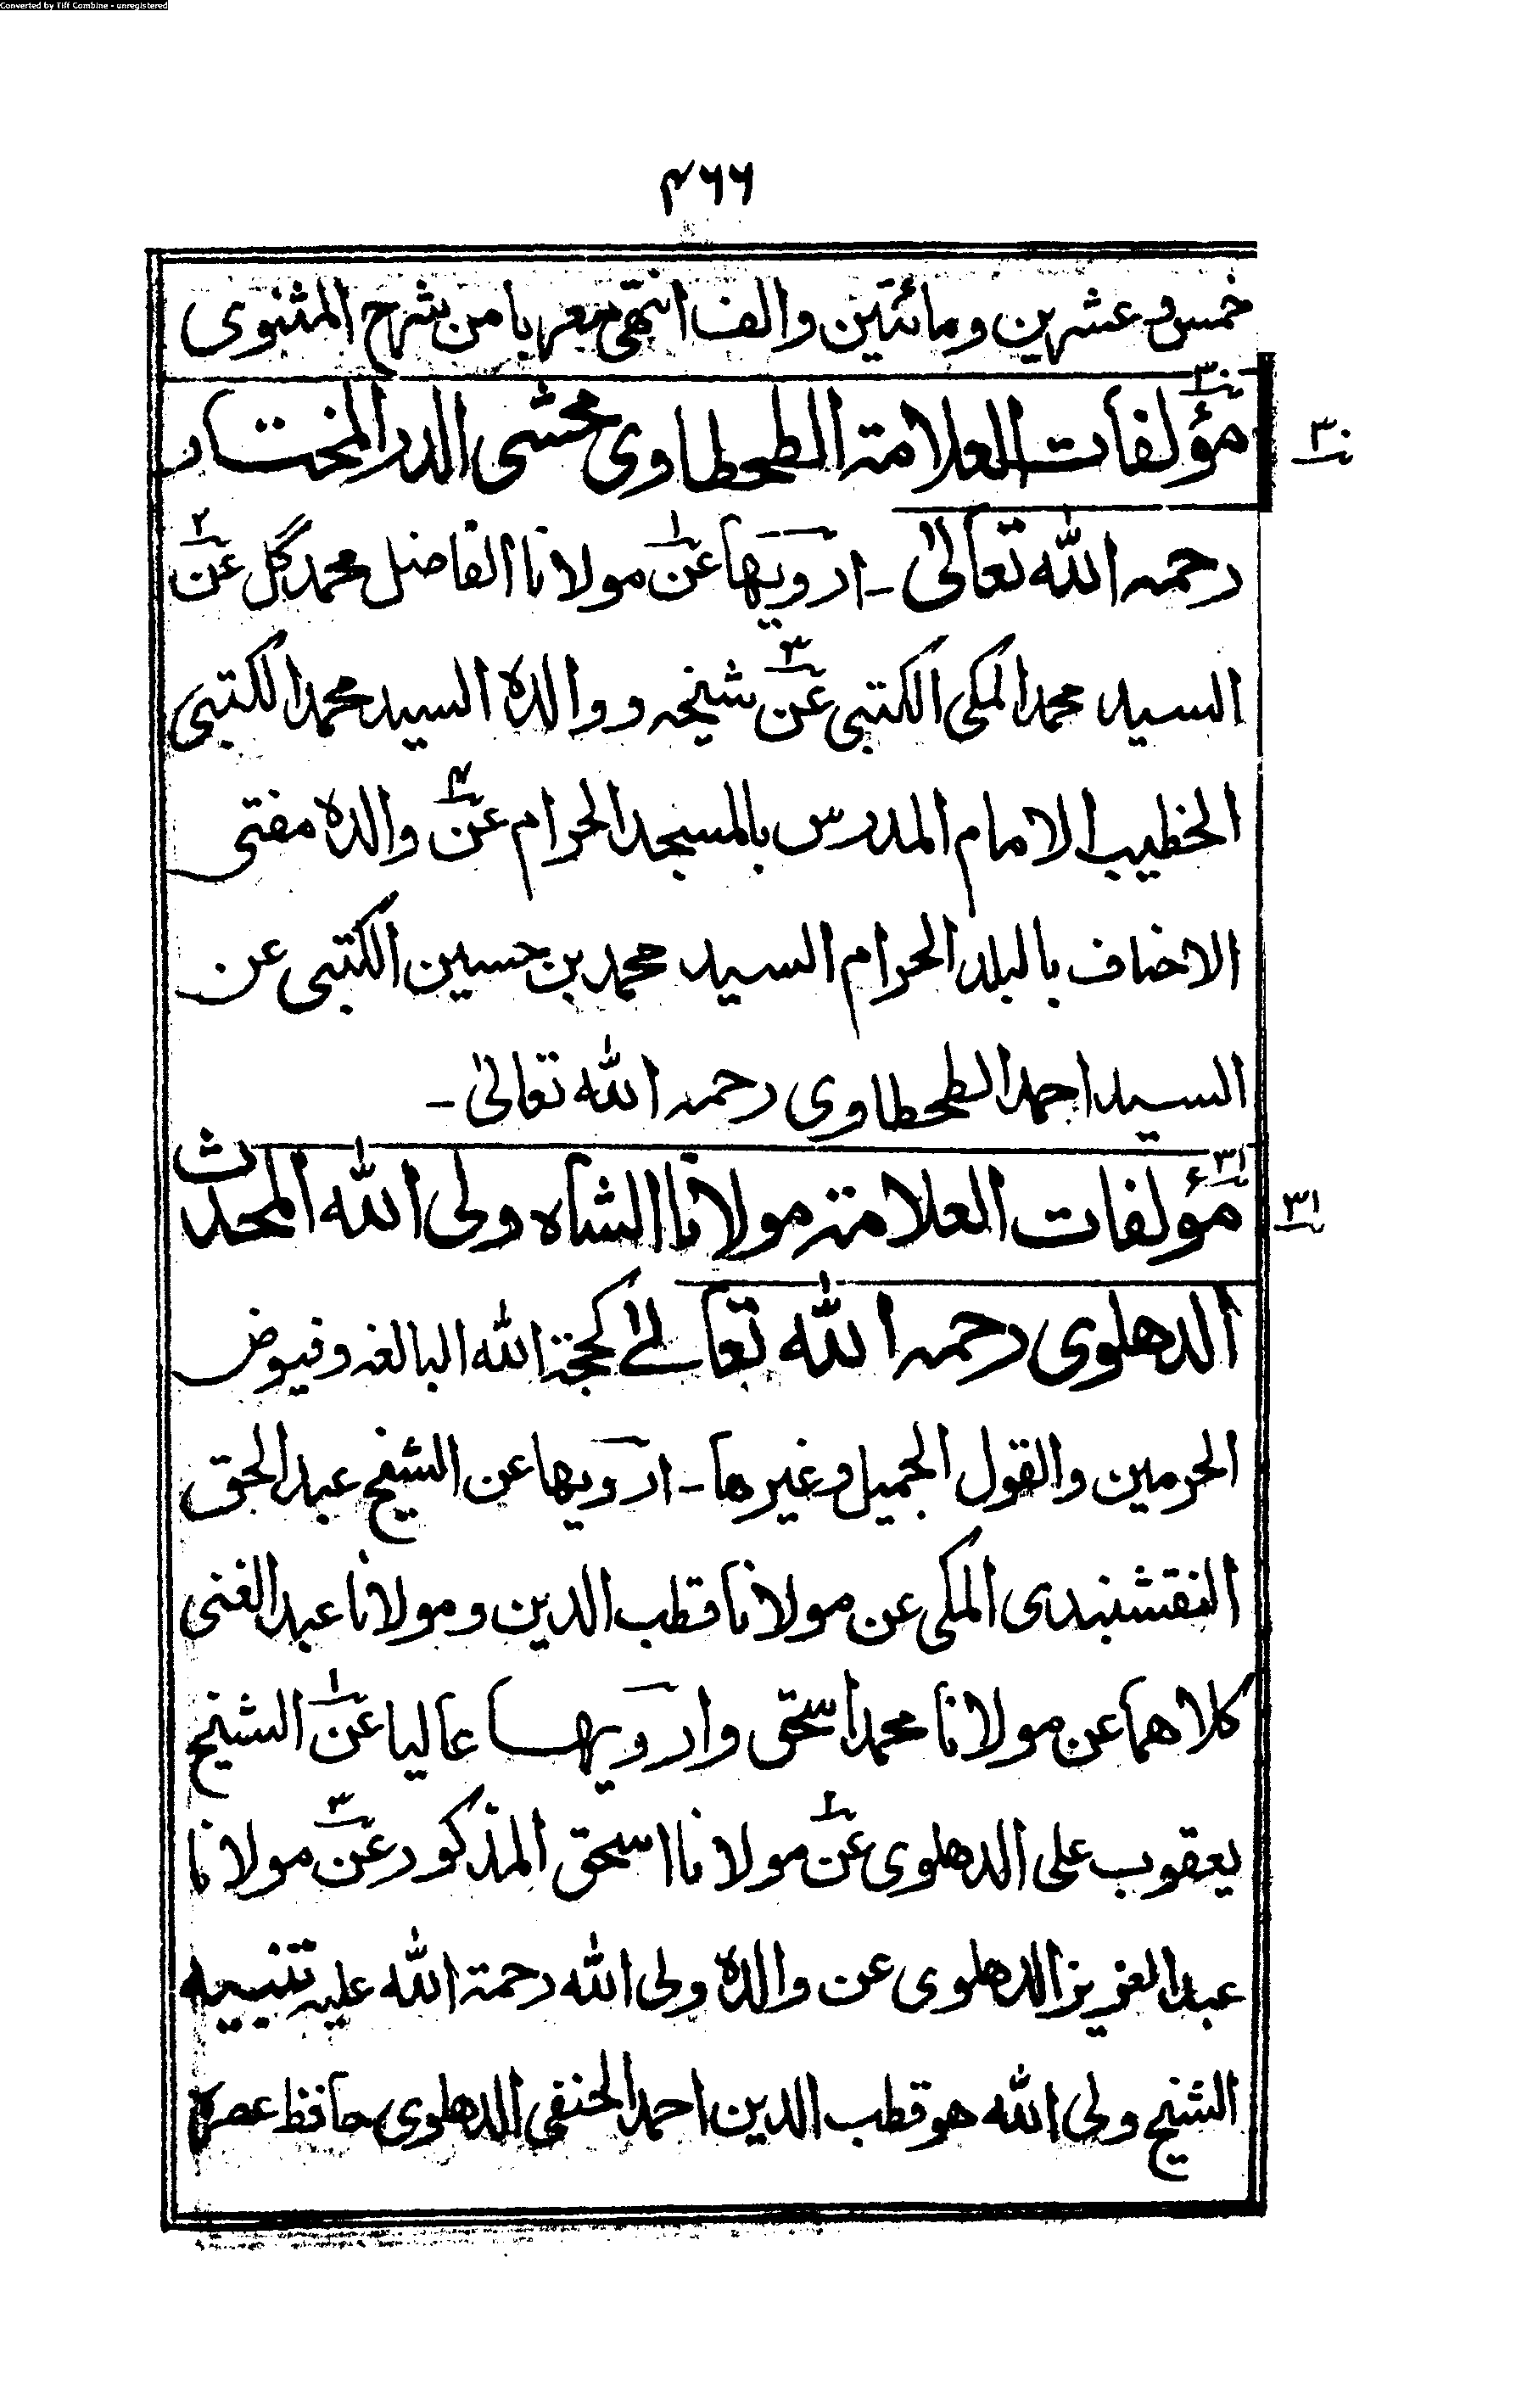 Converted by Tiff Combine - unregistered
۴۶۶
خمس و عشرين ومائتين والف انتهى معربا من شرح المثنوى
۳۰
مؤلفات العلامة الطحطاوى محشى الدر المختار
۳۰
رحمه الله تعالىٰ ۔ ارويها عن۱ مولانا الفاضل محمد گل عن۲
السيد محمد المكى الكتبى عن۳ شيخه ووالده السيد محمد الكتبى
الخطيب الامام المدرس بالمسجد الحرام عن۴ والده مفتى
الاحناف بالبلد الحرام السيد محمد بن حسين الكتبى عن
السيد احمد الطحطاوى رحمه الله تعالىٰ ۔
۳۱
مؤلفات العلامة مولانا الشاه ولى الله المحدث
۳۱
الدهلوى رحمه الله تعالےٰ كحجة الله البالغه وفيوض
الحرمين والقول الجميل وغيرها ۔ ارويها عن الشيخ عبد الحق
النقشبندى المكى عن مولانا قطب الدين ومولانا عبد الغنى
كلاهما عن مولانا محمد اسحق وارويها عاليا عن۱ الشيخ
يعقوب على الدهلوى عن۲ مولانا اسحق المذكور عن۳ مولانا
عبد العزيز الدهلوى عن والده ولى الله رحمة الله عليه تنبيه
الشيخ ولى الله هو قطب الدين احمد الحنفى الدهلوى حافظ عصره